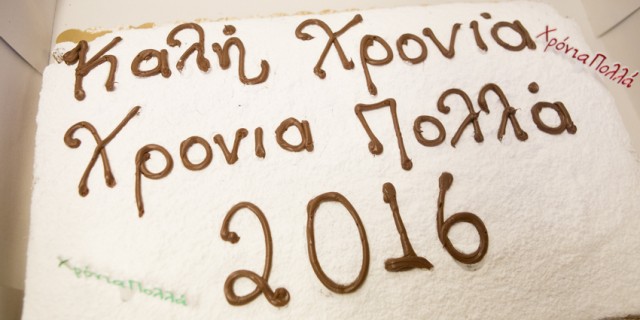 Καλή Χρονιά
Χρόνια Πολλά
Χρονια Πολλά
2016
Χρόνια Πολλά